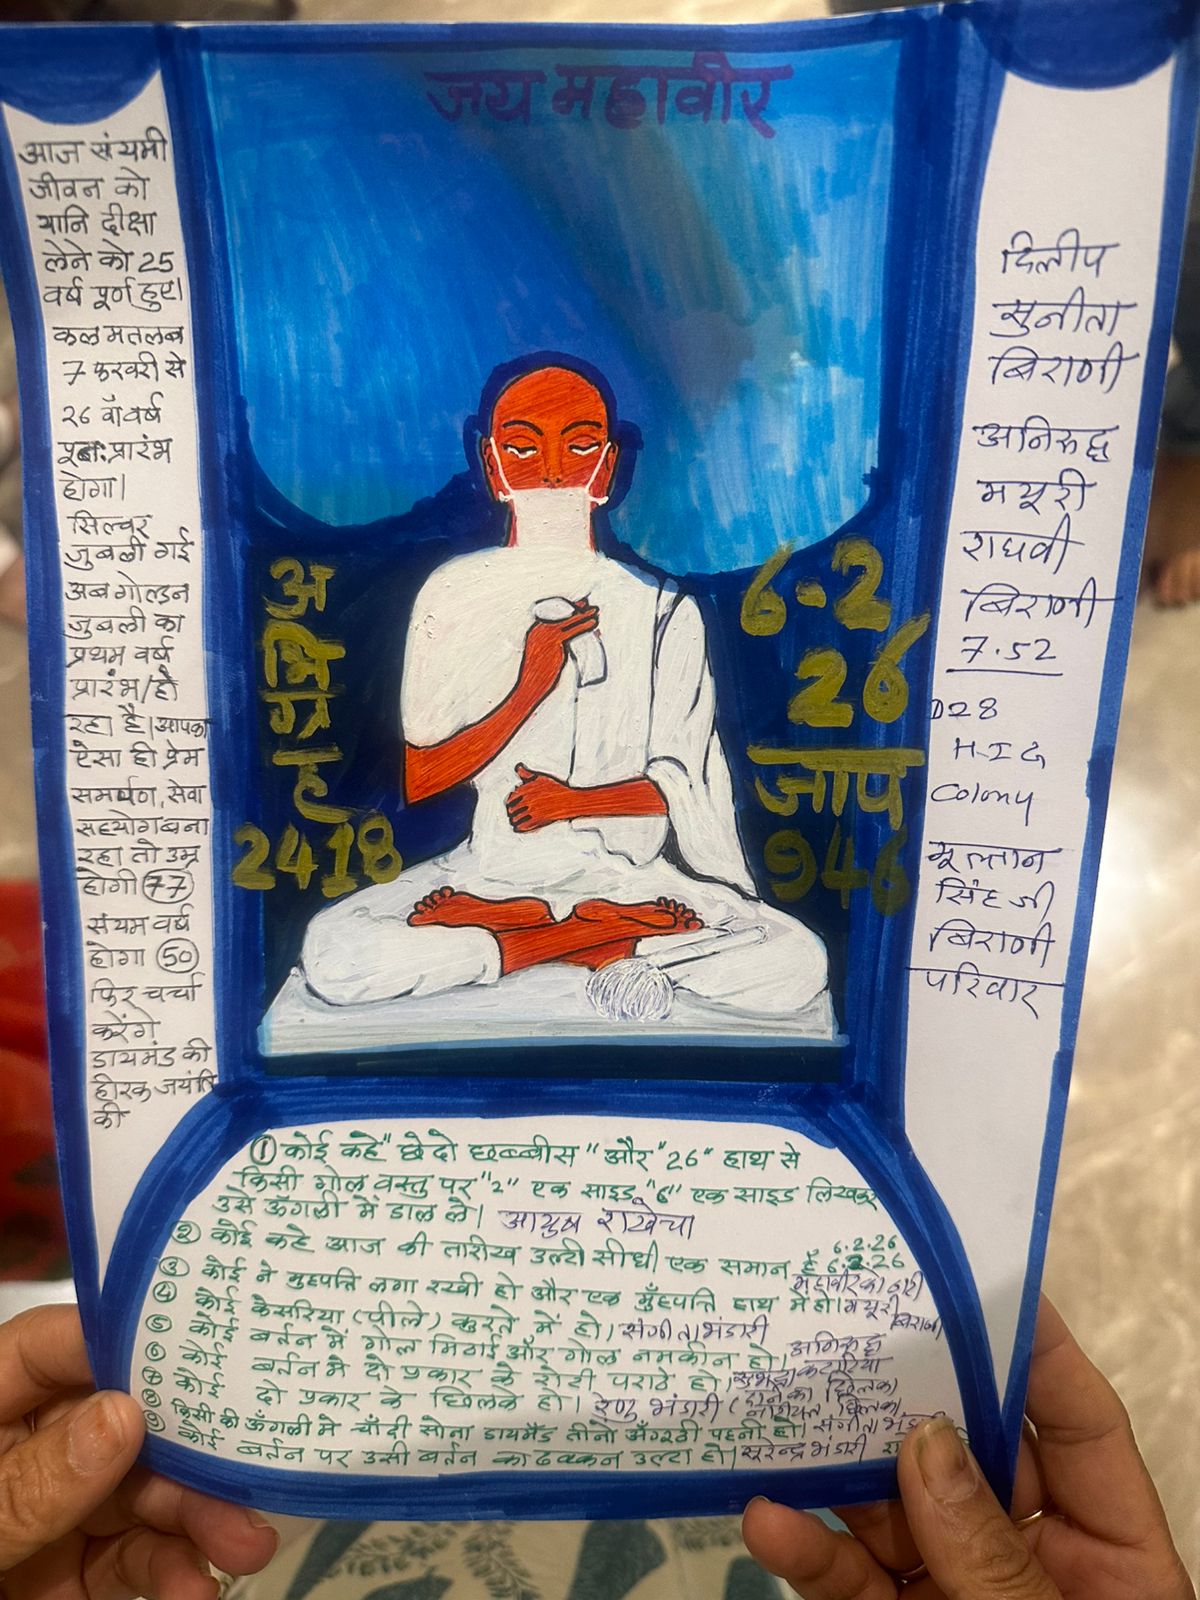 जय महावीर
आज संयमी
जीवन को
यानि दीक्षा
लेने को 25
वर्ष पूर्ण हुए।
कल मतलब
7 फरवरी से
26 वाँ वर्ष
प्रारंभ
होगा।
सिल्वर
जुबली गई
अब गोल्डन
जुबली का
प्रथम वर्ष
प्रारंभ/हो
रहा है। आपका
ऐसा ही प्रेम
समर्पण, सेवा
सहयोग बना
रहा तो उम्र
होगी 77
संयम वर्ष
होगा 50
फिर चर्चा
करेंगे
डायमंड की
हीरक जयंति
की
अ
भि
ग्र
ह
2418
6.2
26
जाप
946
दिलीप
सुनीता
बिराणी
अनिरुद्ध
मयूरी
राघवी
बिराणी
7.52
D28
H.I.G
Colony
सिंह जी
बिराणी
परिवार
① कोई कहे "छेदो छब्बीस" और "26" हाथ से
किसी गोल वस्तु पर "2" एक साइड "6" एक साइड लिखकर
उसे ऊँगली में डाल ले। आयुष राखेचा
② कोई कहे आज की तारीख उल्टी सीधी एक समान है 6.2.26
6.2.26
③ कोई ने मुहपत्ति लगा रखी हो और एक मुँहपत्ति हाथ में हो। मयूरी बिराणी
④ कोई केसरिया (पीले) कुरते में हो। संगीता भंडारी
⑤ कोई बर्तन में गोल मिठाई और गोल नमकीन हो। अनिरुद्ध
⑥ कोई बर्तन में दो प्रकार के रोटी पराठे हो। कटारिया
⑦ कोई दो प्रकार के छिलके हो। रेणु भंडारी
⑧ किसी की ऊँगली में चाँदी सोना डायमंड तीनो अँगूठी पहनी हो। संगीता
⑨ कोई बर्तन पर उसी बर्तन का ढक्कन उल्टा हो। सुरेन्द्र भंडारी